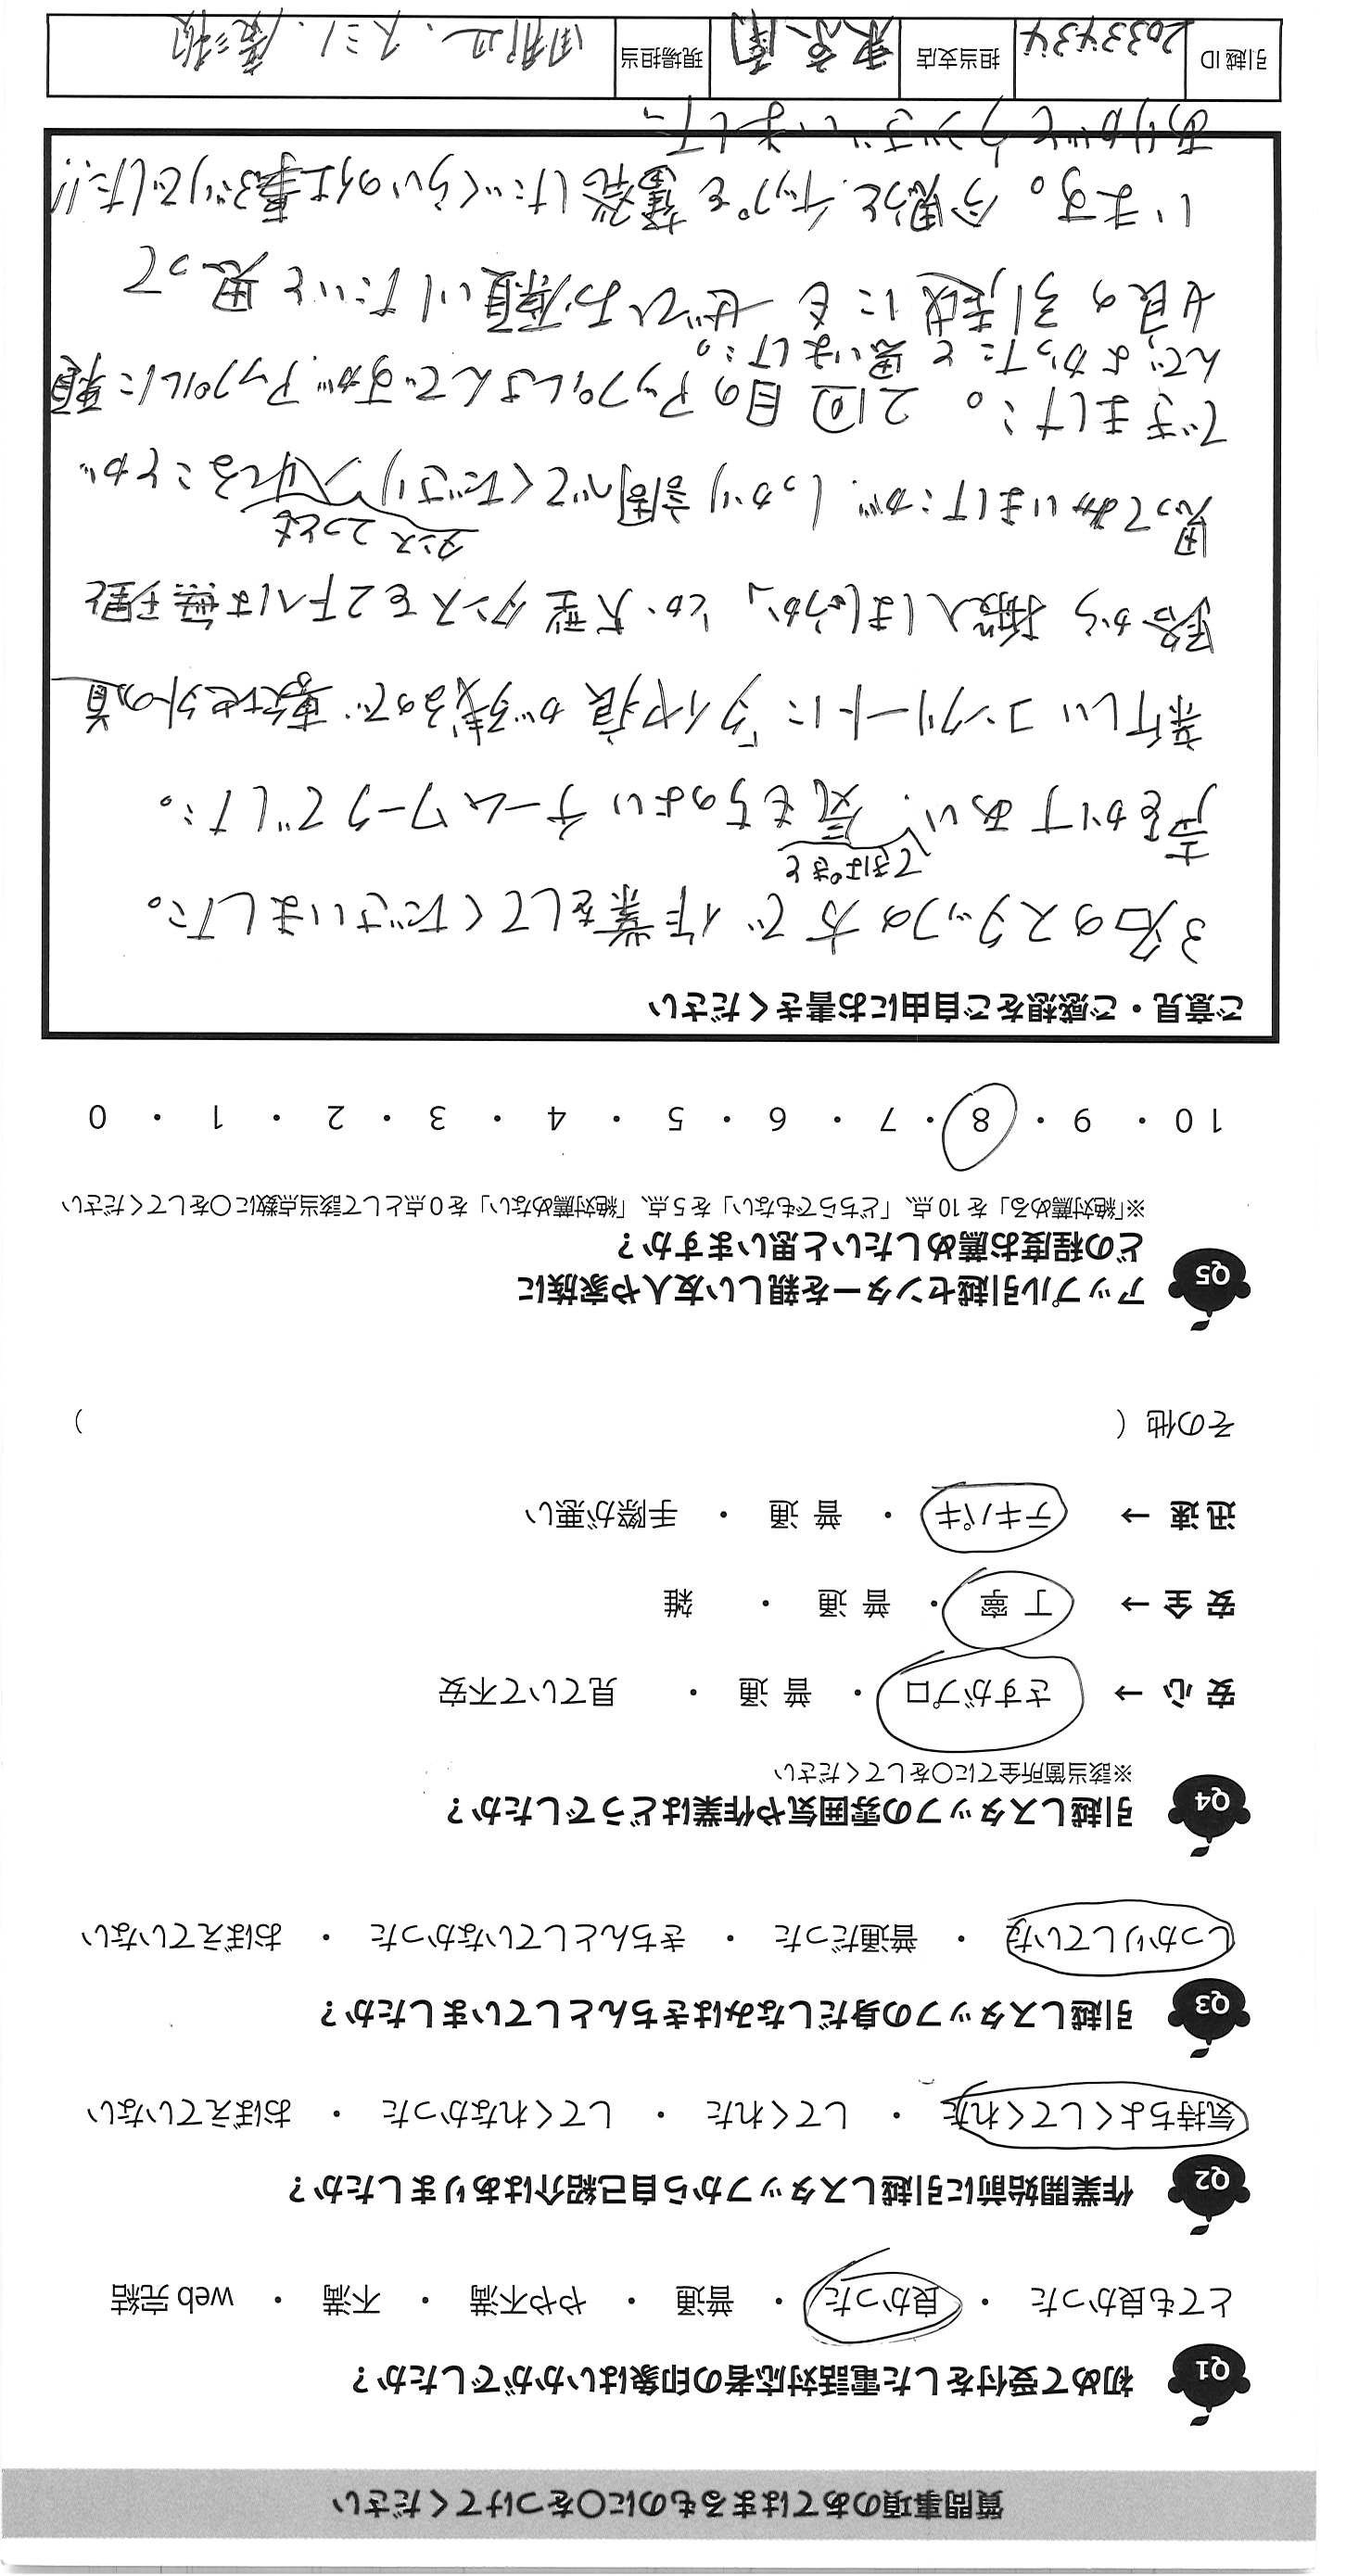 質問事項のあてはまるものに○をつけてください
Q1 初めて受付をした電話対応者の印象はいかがでしたか？
とても良かった ・ 良かった ・ 普通 ・ やや不満 ・ 不満 ・ web 完結
Q2 作業開始前に引越しスタッフから自己紹介はありましたか？
気持ちよくしてくれた ・ してくれた ・ してくれなかった ・ おぼえていない
Q3 引越しスタッフの身だしなみはきちんとしていましたか？
しっかりしていた ・ 普通だった ・ きちんとしていなかった ・ おぼえていない
Q4 引越しスタッフの雰囲気や作業はどうでしたか？
※該当箇所全てに○をしてください
安 心 → さすがプロ ・ 普 通 ・ 見ていて不安
安 全 → 丁 寧 ・ 普 通 ・ 雑
迅 速 → テキパキ ・ 普 通 ・ 手際が悪い
その他（ ）
Q5 アップル引越センターを親しい友人や家族に
どの程度お薦めしたいと思いますか？
※「絶対薦める」を 10 点、「どちらでもない」を 5 点、「絶対薦めない」を 0 点として該当点数に○をしてください
10 ・ 9 ・ 8 ・ 7 ・ 6 ・ 5 ・ 4 ・ 3 ・ 2 ・ 1 ・ 0
ご意見・ご感想をご自由にお書きください
3名のスタッフの方で作業をしてくださいました。
てきぱきと
声をかけあい、気もちのよいチームワークでした。
新しいコンクリートに「タイヤ痕が残るので、敷地外の道
路から搬入しましょうか」とか大型タンスを2Fへは無理と
タンス2つとも
思ってみいましたが、しっかり調べてくださり入れることが
できました。2回目のアップルさんですが、アップルに頼
んでよかったと思いました。
娘の引越にもぜひお願いしたいと思って
います。今思うとチップを奮発したいくらいの仕事ぶりでした!!
ありがとうございました。
引越 ID 2033434 担当支店 東京南 現場担当